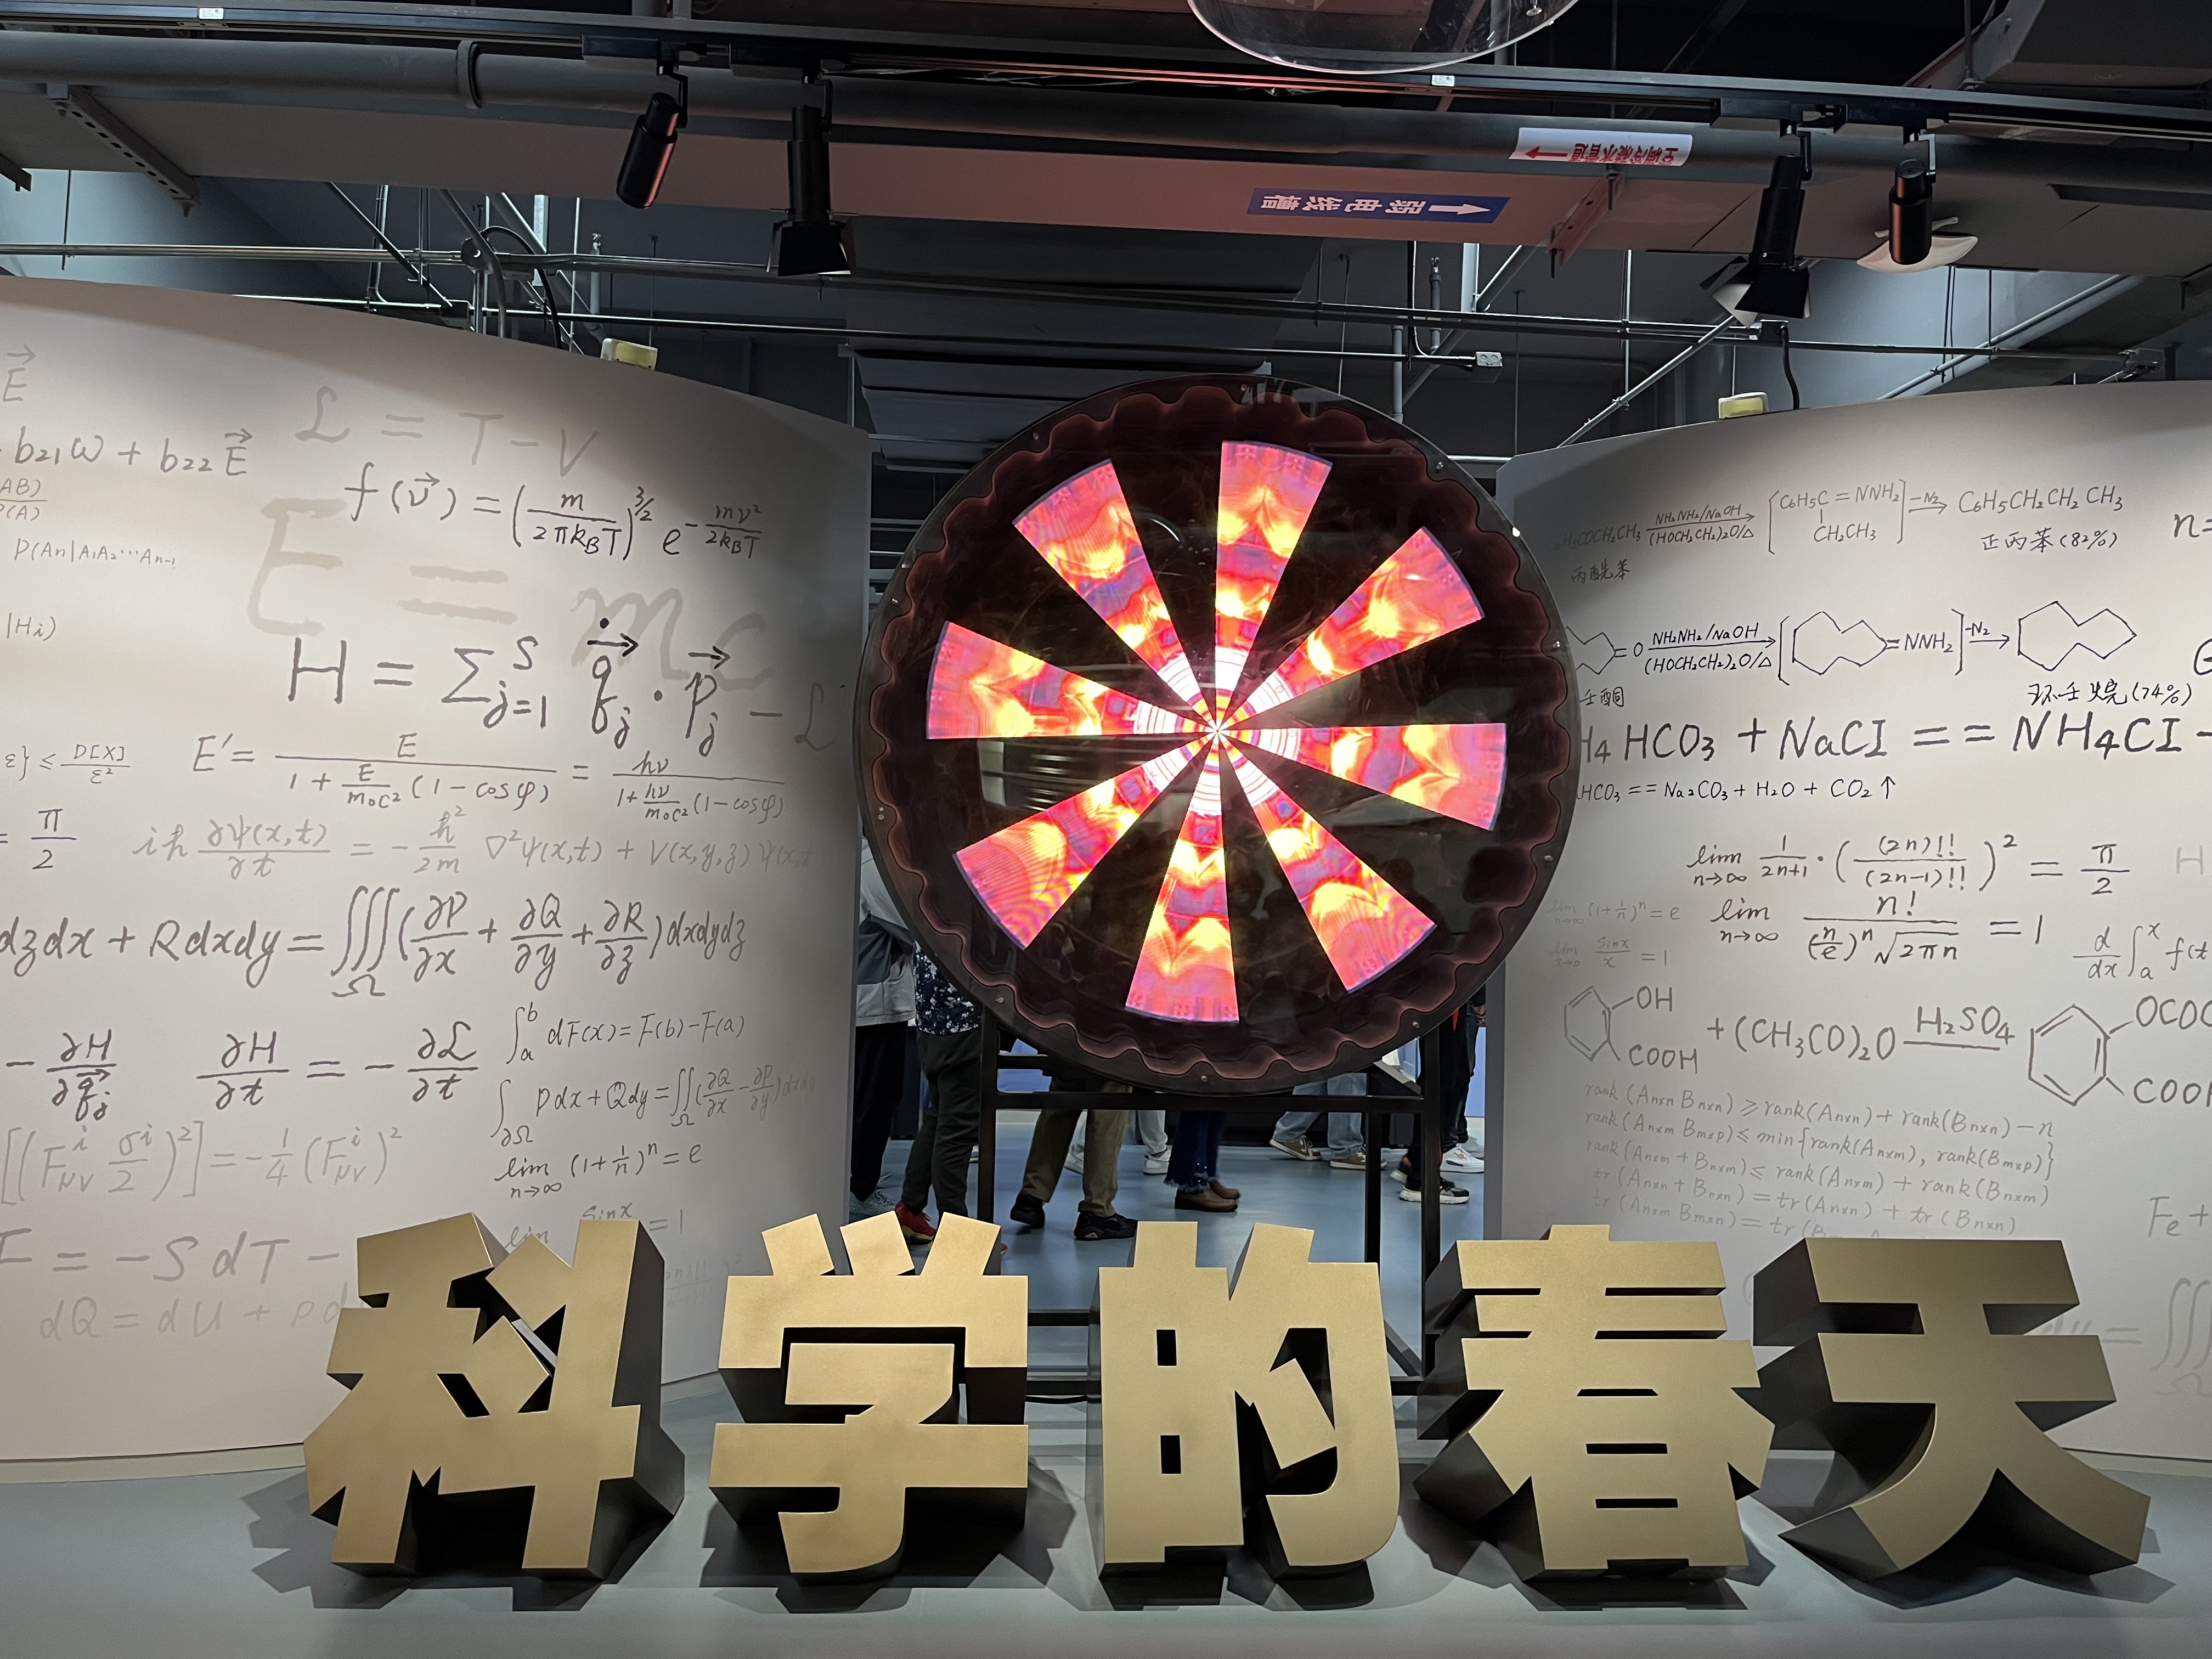 空调冷凝水管道
弱电线槽
E⃗
b₂₁ω + b₂₂E⃗
ℒ = T - V
f(v⃗) = (m/2πk_BT)^{3/2} e^{-mv²/2k_BT}
AB)
P(A)
P(An|A₁A₂⋯An-₁
E = mc
|Hi)
H = ∑_{j=1}^{S} q̇⃗_j · p⃗_j - ℒ
ε} ≤ D[X]/ε²
E′ = E/(1 + E/m₀c² (1 - cosφ)) = hν/(1 + hν/m₀c² (1 - cosφ))
= π/2
iħ ∂ψ(x,t)/∂t = -ħ²/2m ∇²ψ(x,t) + V(x,y,z) ψ(x,t
dzdx + Rdxdy = ∭_Ω (∂P/∂x + ∂Q/∂y + ∂R/∂z) dxdydz
- ∂H/∂q⃗_j
∂H/∂t = - ∂ℒ/∂t
∫_a^b dF(x) = F(b) - F(a)
∫_{∂Ω} Pdx + Qdy = ∬_Ω (∂Q/∂x - ∂P/∂y) dxd
[(F^i_{μν} σ^i/2)²] = -1/4 (F^i_{μν})²
lim_{n→∞} (1 + 1/n)^n = e
lim sinx = 1
= -SdT -
dQ = dU + pd
C₆H₅COCH₂CH₃ NH₂NH₂/NaOH (HOCH₂CH₂)₂O/△ [C₆H₅C = NNH₂ CH₂CH₃] -N₂ → C₆H₅CH₂CH₂CH₃
丙酰苯
正丙苯(82%)
n=
=O NH₂NH₂/NaOH (HOCH₂CH₂)₂O/△ [=NNH₂] -N₂ →
壬酮
环壬烷(74%)
H₄HCO₃ + NaCl == NH₄Cl
HCO₃ == Na₂CO₃ + H₂O + CO₂↑
lim_{n→∞} 1/2n+1 · ((2n)!!/(2n-1)!!)² = π/2
H
lim_{n→∞} (1 + 1/n)^n = e
lim_{n→∞} n!/((n/e)^n √2πn) = 1
lim_{x→0} sinx/x = 1
d/dx ∫_a^x f(t
OH COOH + (CH₃CO)₂O H₂SO₄ OCOC COOH
rank(AnxnBnxn) ⩾ rank(Anxn) + rank(Bnxn) - n
rank(AnxmBmxp) ≤ min{rank(Anxm), rank(Bmxp)}
rank(Anxm + Bnxm) ≤ rank(Anxm) + rank(Bnxm)
tr(Anxn + Bnxn) = tr(Anxn) + tr(Bnxn)
tr(AnxmBmxn) = tr(B
Fe +
科学的春天